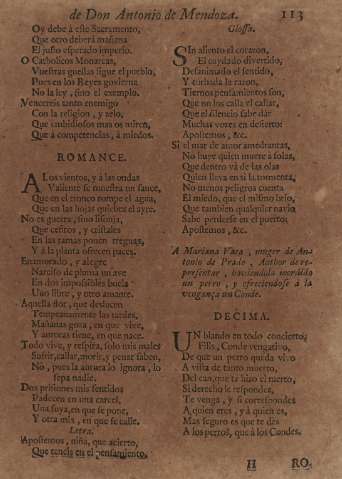 de Don Antonio de Mendoza. 113
Oy debe à este Sacramento,
Que otro deberà mañana
El justo esperado imperio.
O Catholicos Monarcas,
Vuestras huellas sigue el pueblo,
Pues en los Reyes govierna
No la ley, sino el exemplo.
Vencereis tanto enemigo
Con la religion, y zelo,
Que embidiosos mas os miren,
Que à competencias, à miedos.
ROMANCE.
A Los vientos, y à las ondas
Valiente se muestra un sauce,
Que en el tronco rompe el agua,
Que en las hojas quiebra el ayre.
No es guerra, sino lisonja,
Que cefiros, y cristales
En las ramas ponen treguas,
Y à la planta ofrecen pazes.
Enamorado, y alegre
Narciso de pluma un ave
En dos impossibles buela
Uno libre, y otro amante.
Aquella flor, que deslucen
Tempranamente las tardes,
Mañanas goza, en que vive,
Y auroras tiene, en que nace.
Todo vive, y respira, solo mis males
Sufrir, callar, morir, y penar saben,
No, pues la aurora lo ignora, lo
sepa nadie.
Dos prisiones mis sentidos
Padecen en una carcel,
Una suya, en que se pone,
Y otra mia, en que se calle.
Letra.
Apostemos, niña, que acierto,
Que tenéis en el pensamiento.
Glossa.
Sin aliento el corazon,
El cuydado divertido,
Desanimado el sentido,
Y turbada la razon,
Tiernos pensamientos son,
Que no los calla el callar,
Que el silencio sabe dar
Muchas vozes en desierto:
Apostemos, &c.
Si el mar de amor amedrantas,
No huye quien muere à solas,
Que dentro và de las olas
Quien lleva en sì la tormenta,
No menos peligros cuenta
El miedo, que el mismo
Que tambien qualquier navio
Sabe perderse en el puerto:
Apostemos, &c.
A Mariana Vaca, muger de An-
tonio de Prado, Author de re-
presentar, haviendola mordido
un perro, y ofreciendose à la
vengança un Conde.
DECIMA.
UN blando en todo concierto,
Filis, Conde vengativo,
De que un perro quede vivo
A vista de tanto muerto,
Del can, que te hizo el tuerto,
Si derecho le respondes,
Te venga, y si correspondes
A quien eres, y à quien es,
Mas seguro es que te dès
A los perros, que à los Condes.
H RO-